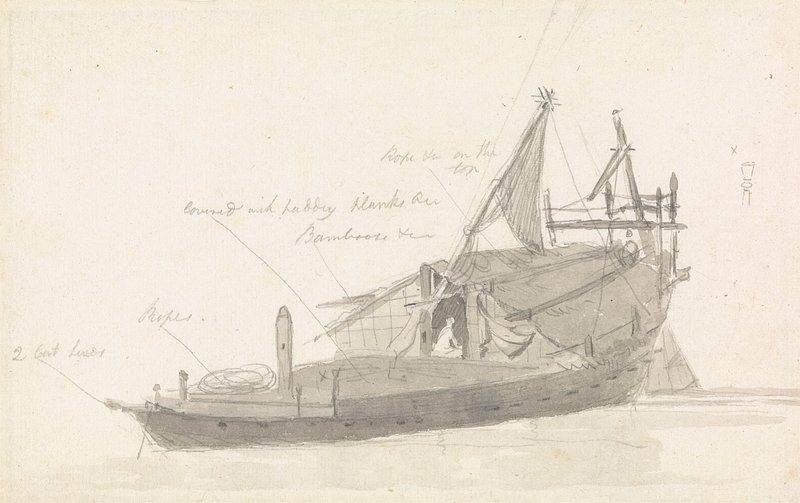 Rope &c on the
top
Covered with planks &c
Bambooes &c
Ropes.
2 Cat heads
x